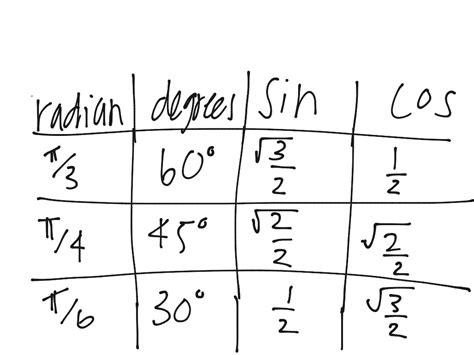 radian degrees sin cos
π/3 60° √3/2 1/2
π/4 45° √2/2 √2/2
π/6 30° 1/2 √3/2